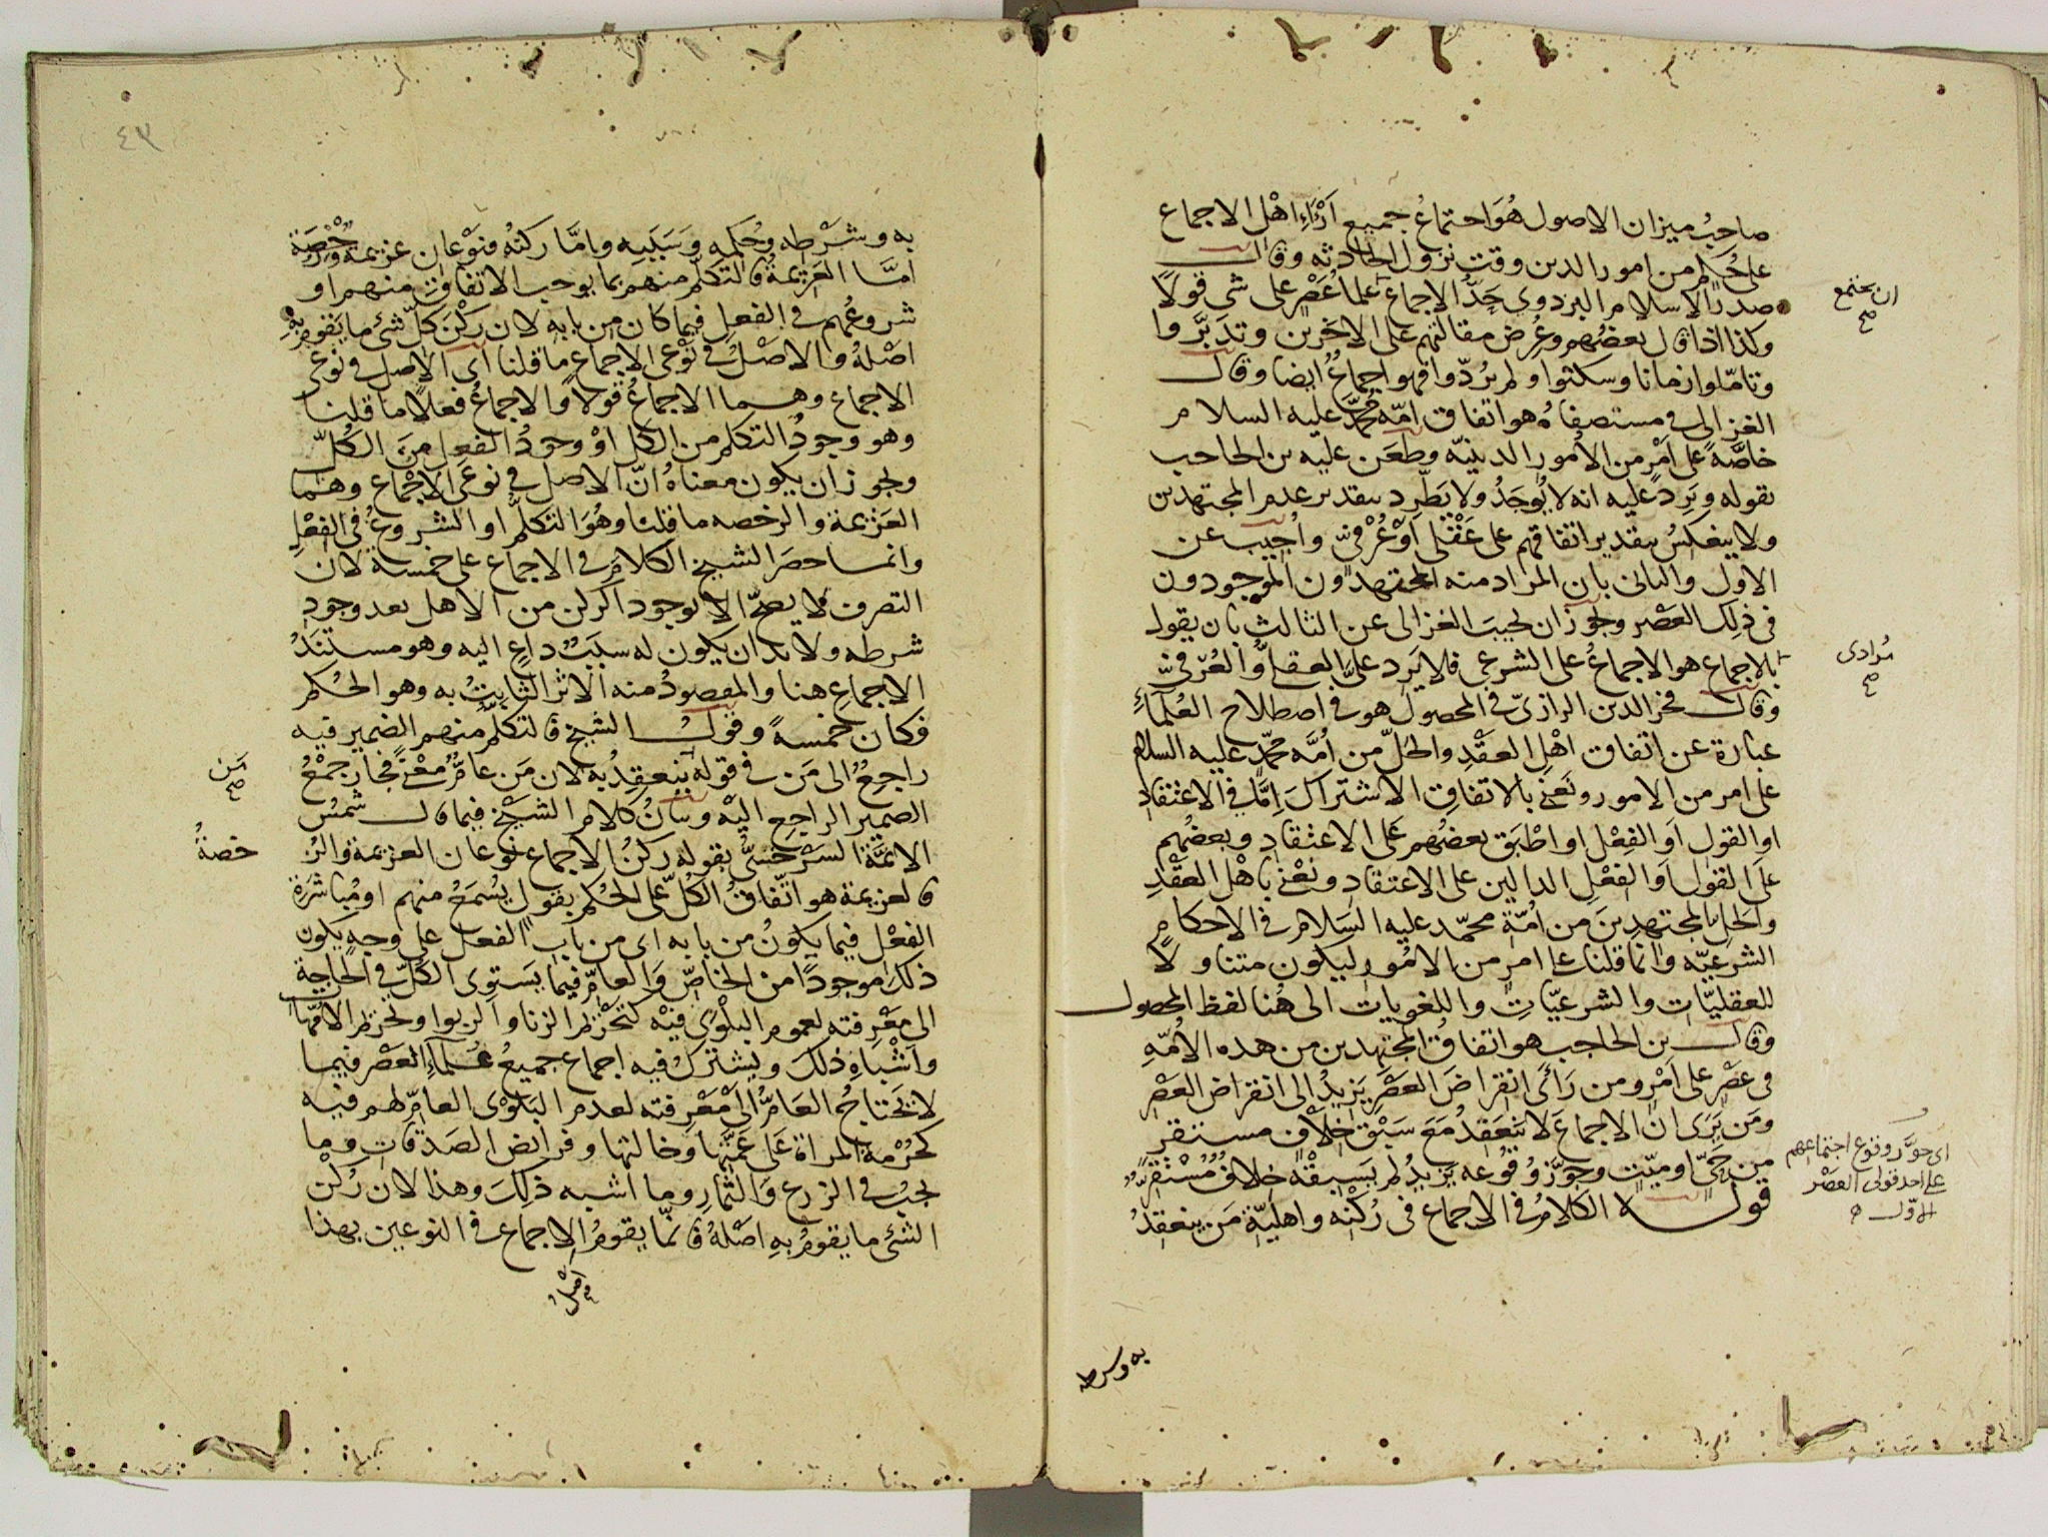 صاحب ميزان الاصول هُوَ اجتماعُ جميع اَرْاءِ اهْل الاجماع
على حُكم من امور الدين وقت نزول الحادثه وقال
صدر الاسلام البزدوى حَدُّ الاجماع علماءُ عَصْرٍ على شى قولاً
ان يجتمع صح
وكذا اذا قال بعضُهم وعُرِض مقالتهم على الاخرين وتدبَّروا
وتامّلوا زمانا وسكتوا ولم يردّوا فهو اجماعٌ ايضا وقال
الغزالى فى مستصفاه هو اتفاق امّه محمّد عليه السلام
خاصَّةً على اَمْرٍ من الاُمور الدينيّه وطعَن عليه بن الحاجب
بقوله ويَرِد عليه انه لا يُوجَدُ ولا يَطّرِد بتقدير عدم المجتهدين
ولا ينعكِسُ بتقدير اتفاقهم على عَقْلىّ اَوْ عُرْفىّ واُجيب عن
الاول والثانى بان المراد منه المجتهدون الموجودون
فى ذلك العَصْر ويجوز ان يجيبَ الغزالى عن الثالث بان يقول
بالاجماع هو الاجماعُ على الشرعى فلا يَرِد علىَّ العقلىُّ والعُرفىّ
مُرادى صح
وقال فخر الدين الرازىّ فى المحصول هو فى اصطلاح العُلَماءِ
عبارة عن اتفاق اهْل العَقْدِ والحَلّ من اُمَّه محمّد عليه السلام
على امر من الامور ونَعْنى بالاتفاقِ الاشتراكَ اِمَّا فى الاعتقاد
او القول اَو الفِعْل او اطْبَق بعضُهم عَلى الاعتقاد وبعضُهم
عَلَى القول اَو الفِعْل الدالين على الاعتقاد ونعْنى باَهْل العَقْدِ
والحَل المجتهدِينَ من اُمّة محمّد عليه السَلام فى الاحكام
الشرعيّه وانما قلنا على امرٍ من الامُور ليكون متناولاً
للعقليّات والشرعيّاتِ واللغويات الى هُنا لفظ المحصول
وقال بن الحاجب هو اتفاقُ المجتهدين من هذه الاُمّه
فى عصْر على اَمْر ومن رَاَى انقراضَ العَصْرِ يَزِيدُ الى انقراض العَصْر
ومَن يَرَى انّ الاجماعَ لا ينعَقِدُ مَعَ سَبْق خِلافٍ مستقر
من حَىّ او ميّت وجوّز وُقوعَه يَزيدُ لم يَسبِقْهُ خِلافٌ مُسْتقِرٌّ
اى جوَّز وقوع اجتماعهم
على احد قولى العَصْر
الاوّل
قوله الكلامُ فى الاجماع فى رُكنْه واهليّة مَن ينعقِدُ
به وشرطه
٤٣
به وشَرْطِه وحُكمِه وَسَبَبِه وامَّا ركنُه فنوْعان عزيمة ورُخْصَة
امَّا العَزيمةُ فالتكلّم منهم بما يوجب الاتفاق منهم او
شروعُهم فى الفعل فيما كان من بابه لان ركْنَ كلّ شئ ما يَقوم به
اصْلُهُ والاصْلُ فى نوْعى الاجماع ما قلنا اى الاصل فى نوعى
الاجماع وهما الاجماعُ قولاً والاجماعُ فعلاً ما قلنا
وهو وجودُ التكلم من الكل اوْ وجودُ الفعل مِنَ الكُلّ
ويجوز ان يكون معناهُ انّ الاصل فى نوعَى الاِجْماع وهما
العَزيمة والرخصه ما قلنا وهُوَ التكلُّم او الشروعُ فى الفِعْلِ
وانما حصَر الشيخ الكلامَ فى الاجماع على خمسةٍ لان
التصرف لا يصحّ الا بوجود الركن من الاهل بعد وجودِ
شرطه ولا بد ان يكون له سببٌ داعٍ اليه وهو مستنَدُ
الاجماعِ هنا والمقصودُ منه الاثر الثابتُ به وهو الحُكم
فكان خمسةً وقول الشيخ فالتكلّم منهم الضمير فيه
راجعٌ الى مَن فى قوله ينعقِدُ به لان مَن عامٌّ مَعْنًى فجاز جمْعُ
مَن صح
الضمير الراجع اليْه وبيانُ كلام الشيْخ فيما قال شمسُ
الائمَّة السَرْخسىُّ بقوله ركنُ الاجماع نوْعان العزيمة والر
خصةُ
فالعزيمة هو اتّفاقُ الكُلّ على الحُكم بقول يُسمَعُ منهم او مُباشَرة
الفعْل فيما يكونُ من بابه اى من باب الفعل على وجهٍ يكون
ذلك موجودًا من الخاصّ والعامّ فيما يَستوى الكلّ فى الحاجة
الى مَعْرِفته لعموم البلْوَى فيْه كتحْريم الزنا والربوا وتحريم الامّهات
واشْباهِ ذلكَ ويشتركُ فيه اجماع جميعُ عُلماءِ العَصْر فيما
لا يَحتاجُ العَامُّ الى مَعْرِفته لعدم البَلْوَى العامّ لهم فيه
كحُرْمة المراة عَلى عَمّتِها وخالتها وفرايض الصَدقاتِ وما
يجبُ فى الزرع وَالثمارِ وما اشبه ذلكَ وهذا لان رُكْنَ
الشئ ما يقومُ به اصْلهُ فانّما يقومُ الاجماع فى النوعين بهذا
اصْلُ صح